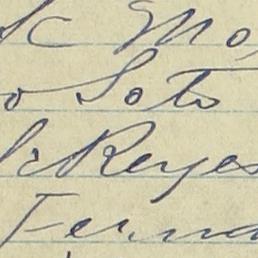 Mo
o Soto
Reyes
Fern